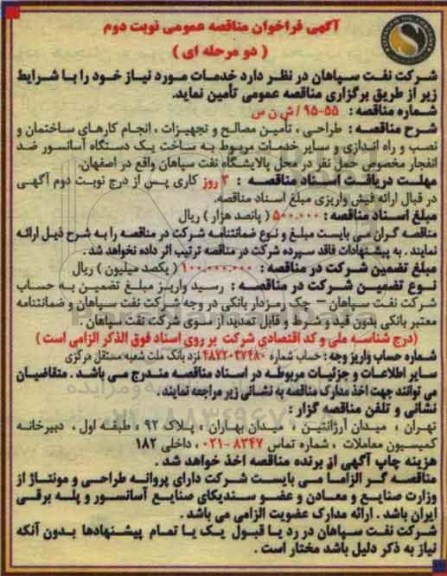 آگهی فراخوان مناقصه عمومی نوبت دوم
( دو مرحله ای )
شرکت نفت سپاهان در نظر دارد خدمات مورد نیاز خود را با شرایط
زیر از طریق برگزاری مناقصه عمومی تأمین نماید.
شماره مناقصه : ۵۵-۹۵ / ش ن س
شرح مناقصه : طراحی ، تأمین مصالح و تجهیزات ، انجام کارهای ساختمان و
نصب و راه اندازی و سایر خدمات مربوط به ساخت یک دستگاه آسانسور ضد
انفجار مخصوص حمل نفر در محل پالایشگاه نفت سپاهان واقع در اصفهان.
مهلت دریافت اسناد مناقصه : ۳ روز کاری پس از درج نوبت دوم آگهی
در قبال ارائه فیش واریزی مبلغ اسناد مناقصه.
مبلغ اسناد مناقصه : ۵۰۰.۰۰۰ ( پانصد هزار ) ریال
مناقصه گران می بایست مبلغ و نوع ضمانتنامه شرکت در مناقصه را به شرح ذیل ارائه
نمایند . به پیشنهادات فاقد سپرده شرکت در مناقصه ترتیب اثر داده نخواهد شد .
مبلغ تضمین شرکت در مناقصه : ۱۰۰.۰۰۰.۰۰۰ ( یکصد میلیون ) ریال
نوع تضمین شرکت در مناقصه : رسید واریز مبلغ تضمین به حساب
شرکت نفت سپاهان – چک رمزدار بانکی در وجه شرکت نفت سپاهان و ضمانتنامه
معتبر بانکی بدون قید و شرط و قابل تمدید از سوی شرکت نفت سپاهان .
(درج شناسه ملی و کد اقتصادی شرکت بر روی اسناد فوق الذکر الزامی است )
شماره حساب واریز وجه : حساب شماره ۴۸۷۲۰۳۷۴۸۰ نزد بانک ملت شعبه مستقل مرکزی
سایر اطلاعات و جزئیات مربوطه در اسناد مناقصه مندرج می باشد . متقاضیان
می توانند جهت اخذ مدارک مناقصه به نشانی زیر مراجعه نمایند.
نشانی و تلفن مناقصه گزار :
تهران ، میدان آرژانتین ، میدان بهاران ، پلاک ۹۲ ، طبقه اول ، دبیرخانه
کمیسیون معاملات ، شماره تماس ۸۳۴۷-۰۲۱ ، داخلی ۱۸۲
هزینه چاپ آگهی از برنده مناقصه اخذ خواهد شد .
مناقصه گر الزاما می بایست شرکت دارای پروانه طراحی و مونتاژ از
وزارت صنایع و معادن و عضو سندیکای صنایع آسانسور و پله برقی
ایران باشد . ارائه مدارک عضویت الزامی می باشد .
شرکت نفت سپاهان در رد یا قبول یک یا تمام پیشنهادها بدون آنکه
نیاز به ذکر دلیل باشد مختار است .